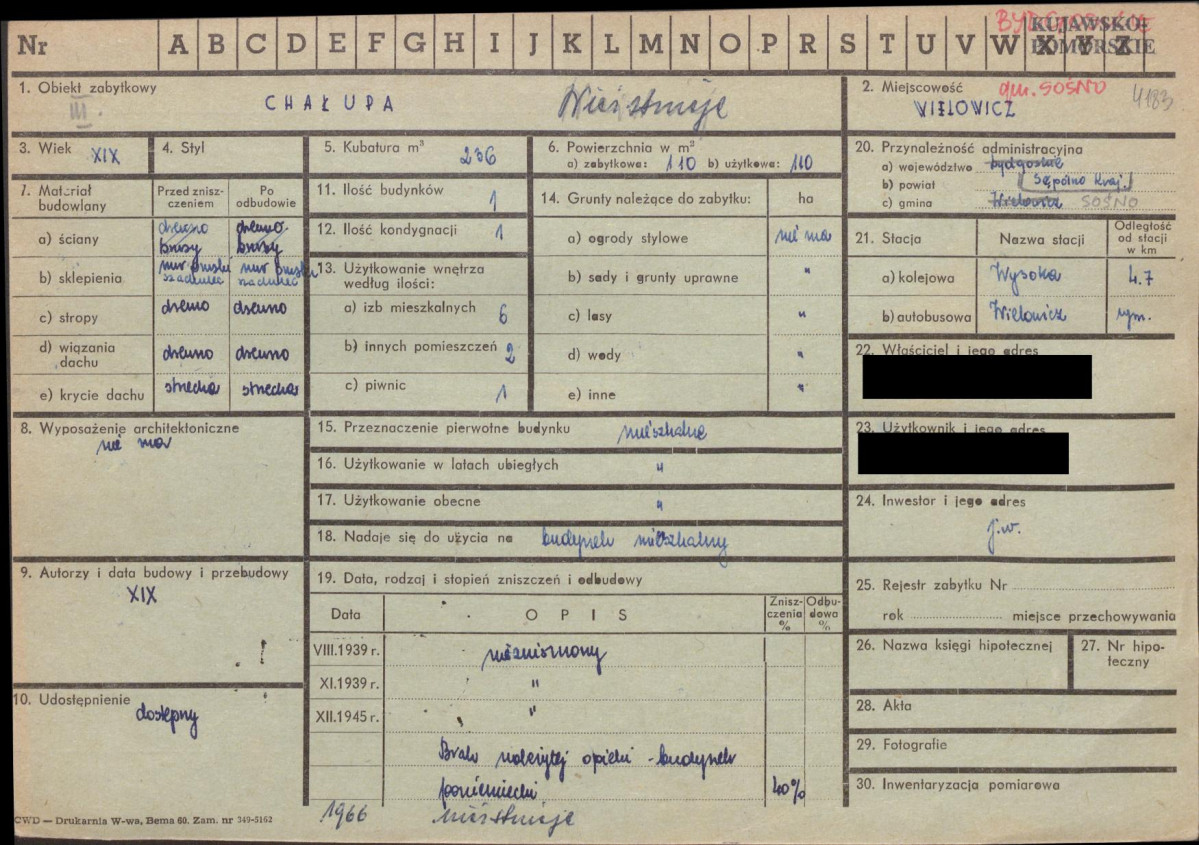 BYDGOSKIE KUJAWSKO-
POMORSKIE
Nr A B C D E F G H I J K L M N O P R S T U V W X Y Z
1. Obiekt zabytkowy
III.
CHAŁUPA
Nieistnieje
2. Miejscowość gm. SOŚNO 4183
WIELOWICZ
3. Wiek XIX
4. Styl
5. Kubatura m³ 236
6. Powierzchnia w m²
a) zabytkowa: 110 b) użytkowa: 110
20. Przynależność administracyjna
a) województwo bydgoskie
b) powiat Sępólno Kraj.
c) gmina Wielowicz SOŚNO
7. Materiał budowlany
Przed znisz-
czeniem
Po
odbudowie
a) ściany drewno drewno
b) sklepienia
c) stropy drewno drewno
d) wiązania dachu drewno drewno
e) krycie dachu strzecha strzecha
11. Ilość budynków 1
12. Ilość kondygnacji 1
13. Użytkowanie wnętrza
według ilości:
a) izb mieszkalnych 6
b) innych pomieszczeń 2
c) piwnic 1
14. Grunty należące do zabytku: ha
a) ogrody stylowe nie ma
b) sady i grunty uprawne "
c) lasy "
d) wody "
e) inne "
21. Stacja Nazwa stacji
Odległość
od stacji
w km
a) kolejowa Wysoka 4.7
b) autobusowa Wielowicz
22. Właściciel i jego adres
8. Wyposażenie architektoniczne
nie ma
15. Przeznaczenie pierwotne budynku mieszkalne
16. Użytkowanie w latach ubiegłych "
17. Użytkowanie obecne "
18. Nadaje się do użycia na budynek mieszkalny
23. Użytkownik i jego adres
24. Inwestor i jego adres
j.w.
9. Autorzy i data budowy i przebudowy
XIX
19. Data, rodzaj i stopień zniszczeń i odbudowy
Data OPIS
Znisz-
czenia
%
Odbu-
dowa
%
VIII.1939 r. niezniszczony
XI.1939 r. "
XII.1945 r. "
Brak należytej opieki - budynek
poniemiecki 40%
1966 nieistnieje
25. Rejestr zabytku Nr
rok miejsce przechowywania
26. Nazwa księgi hipotecznej
27. Nr hipo-
teczny
10. Udostępnienie
dostępny
28. Akta
29. Fotografie
30. Inwentaryzacja pomiarowa
CWD — Drukarnia W-wa, Bema 60. Zam. nr 349-5162